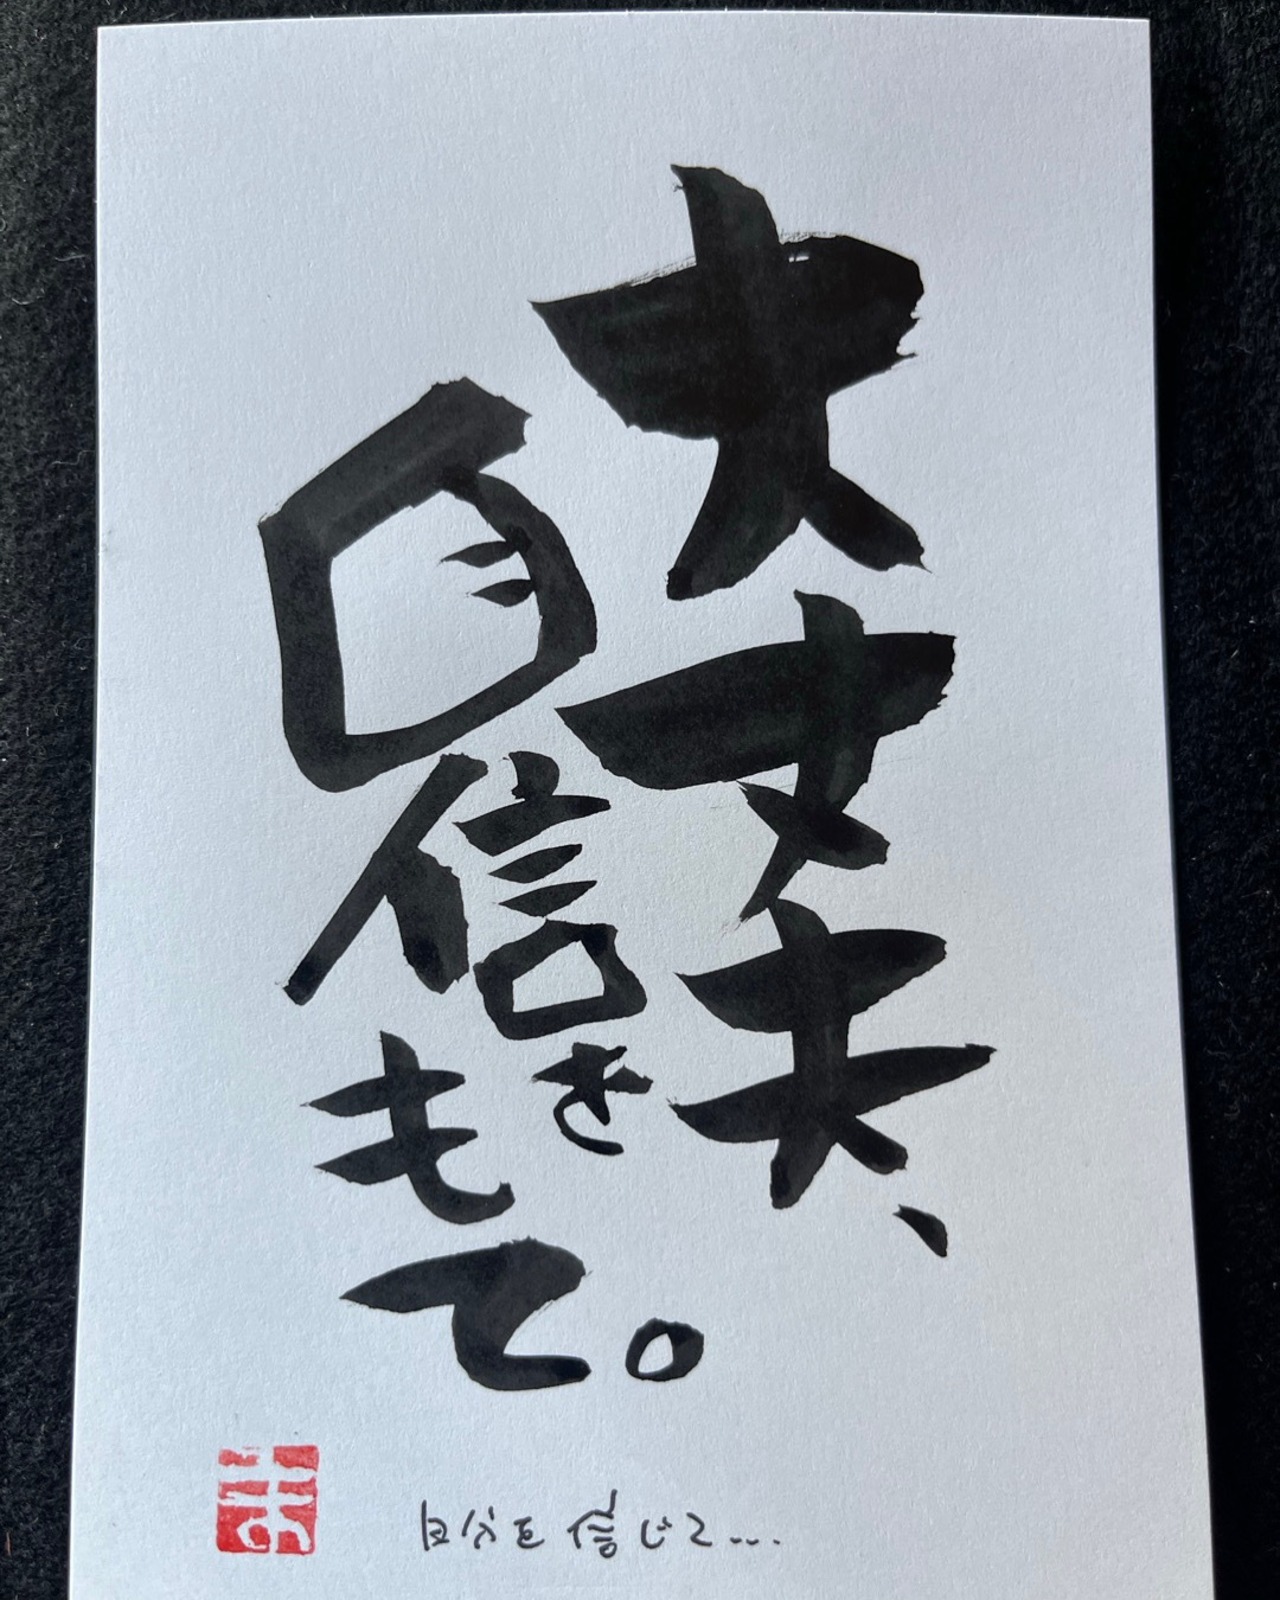 大丈夫、
自信を
もて。
自分を信じて...
ま